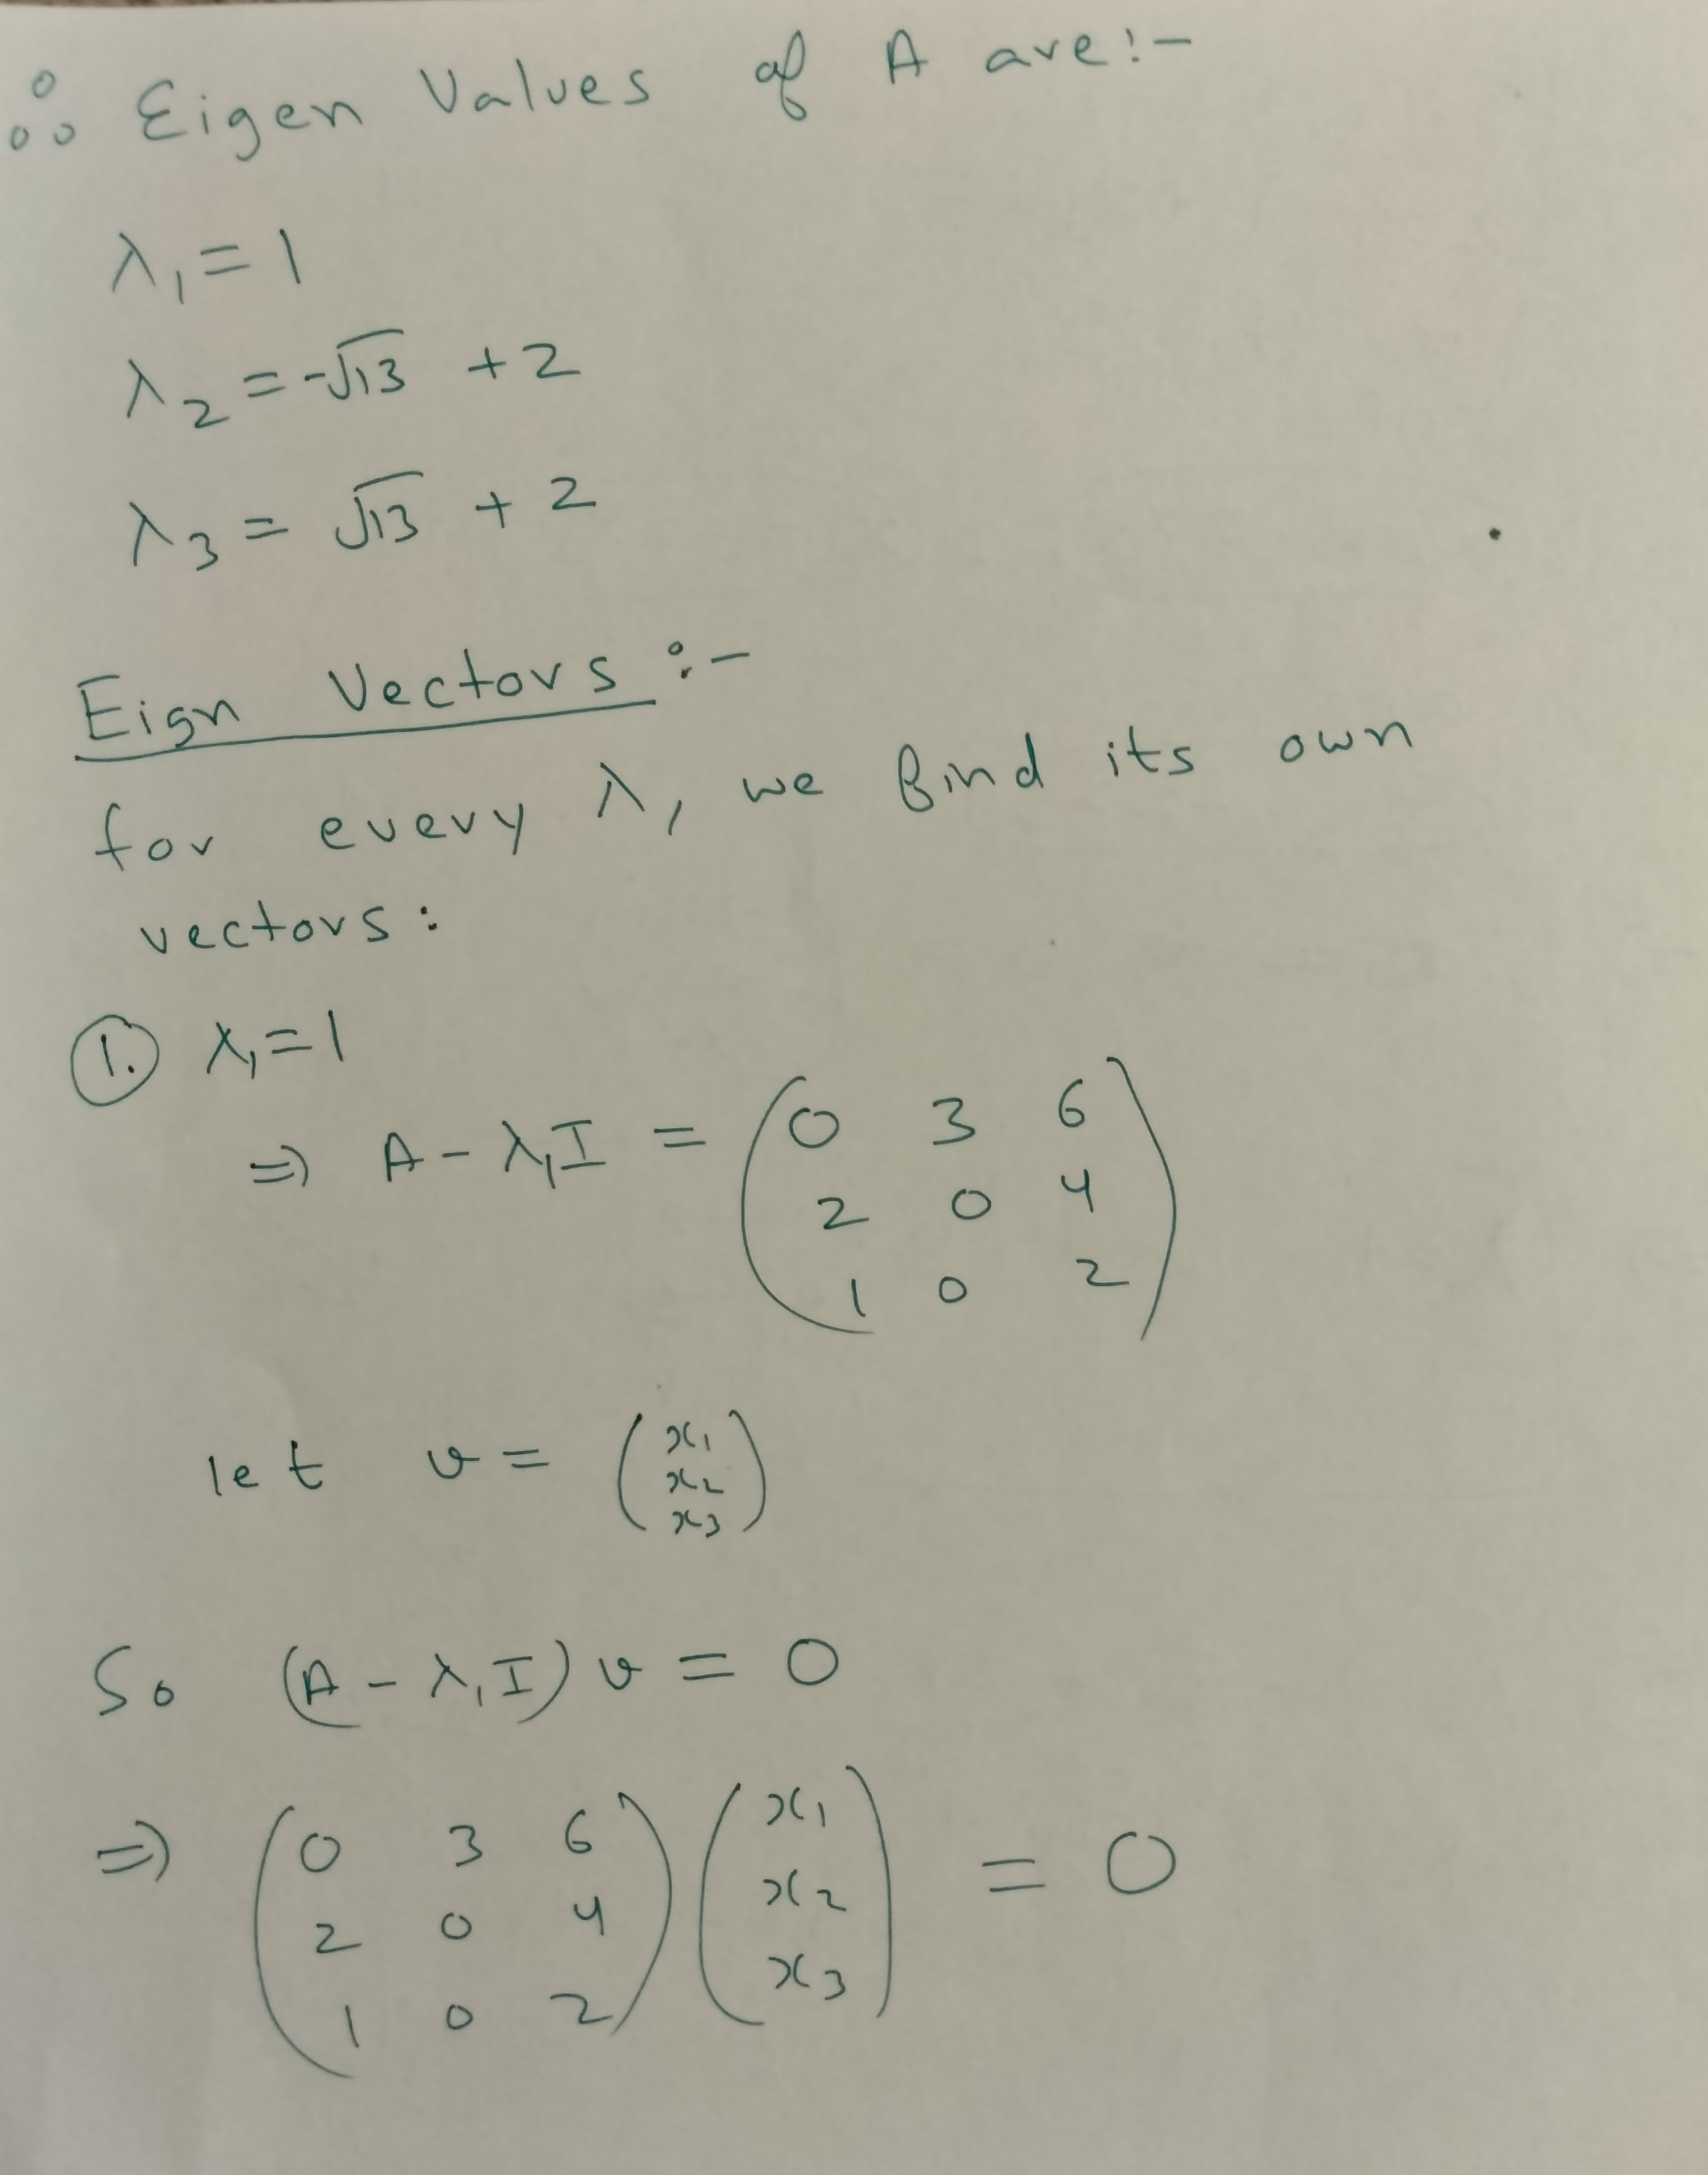 ∴ Eigen Values of A are:-
λ₁ = 1
λ₂ = -√13 + 2
λ₃ = √13 + 2
Eign Vectors :-
for every λ, we find its own
vectors:
1. λ₁ = 1
⇒ A - λ₁I = (0 3 6
2 0 4
1 0 2)
let v = (x₁
x₂
x₃)
So (A - λ₁I) v = 0
⇒ (0 3 6
2 0 4
1 0 2) (x₁
x₂
x₃) = 0